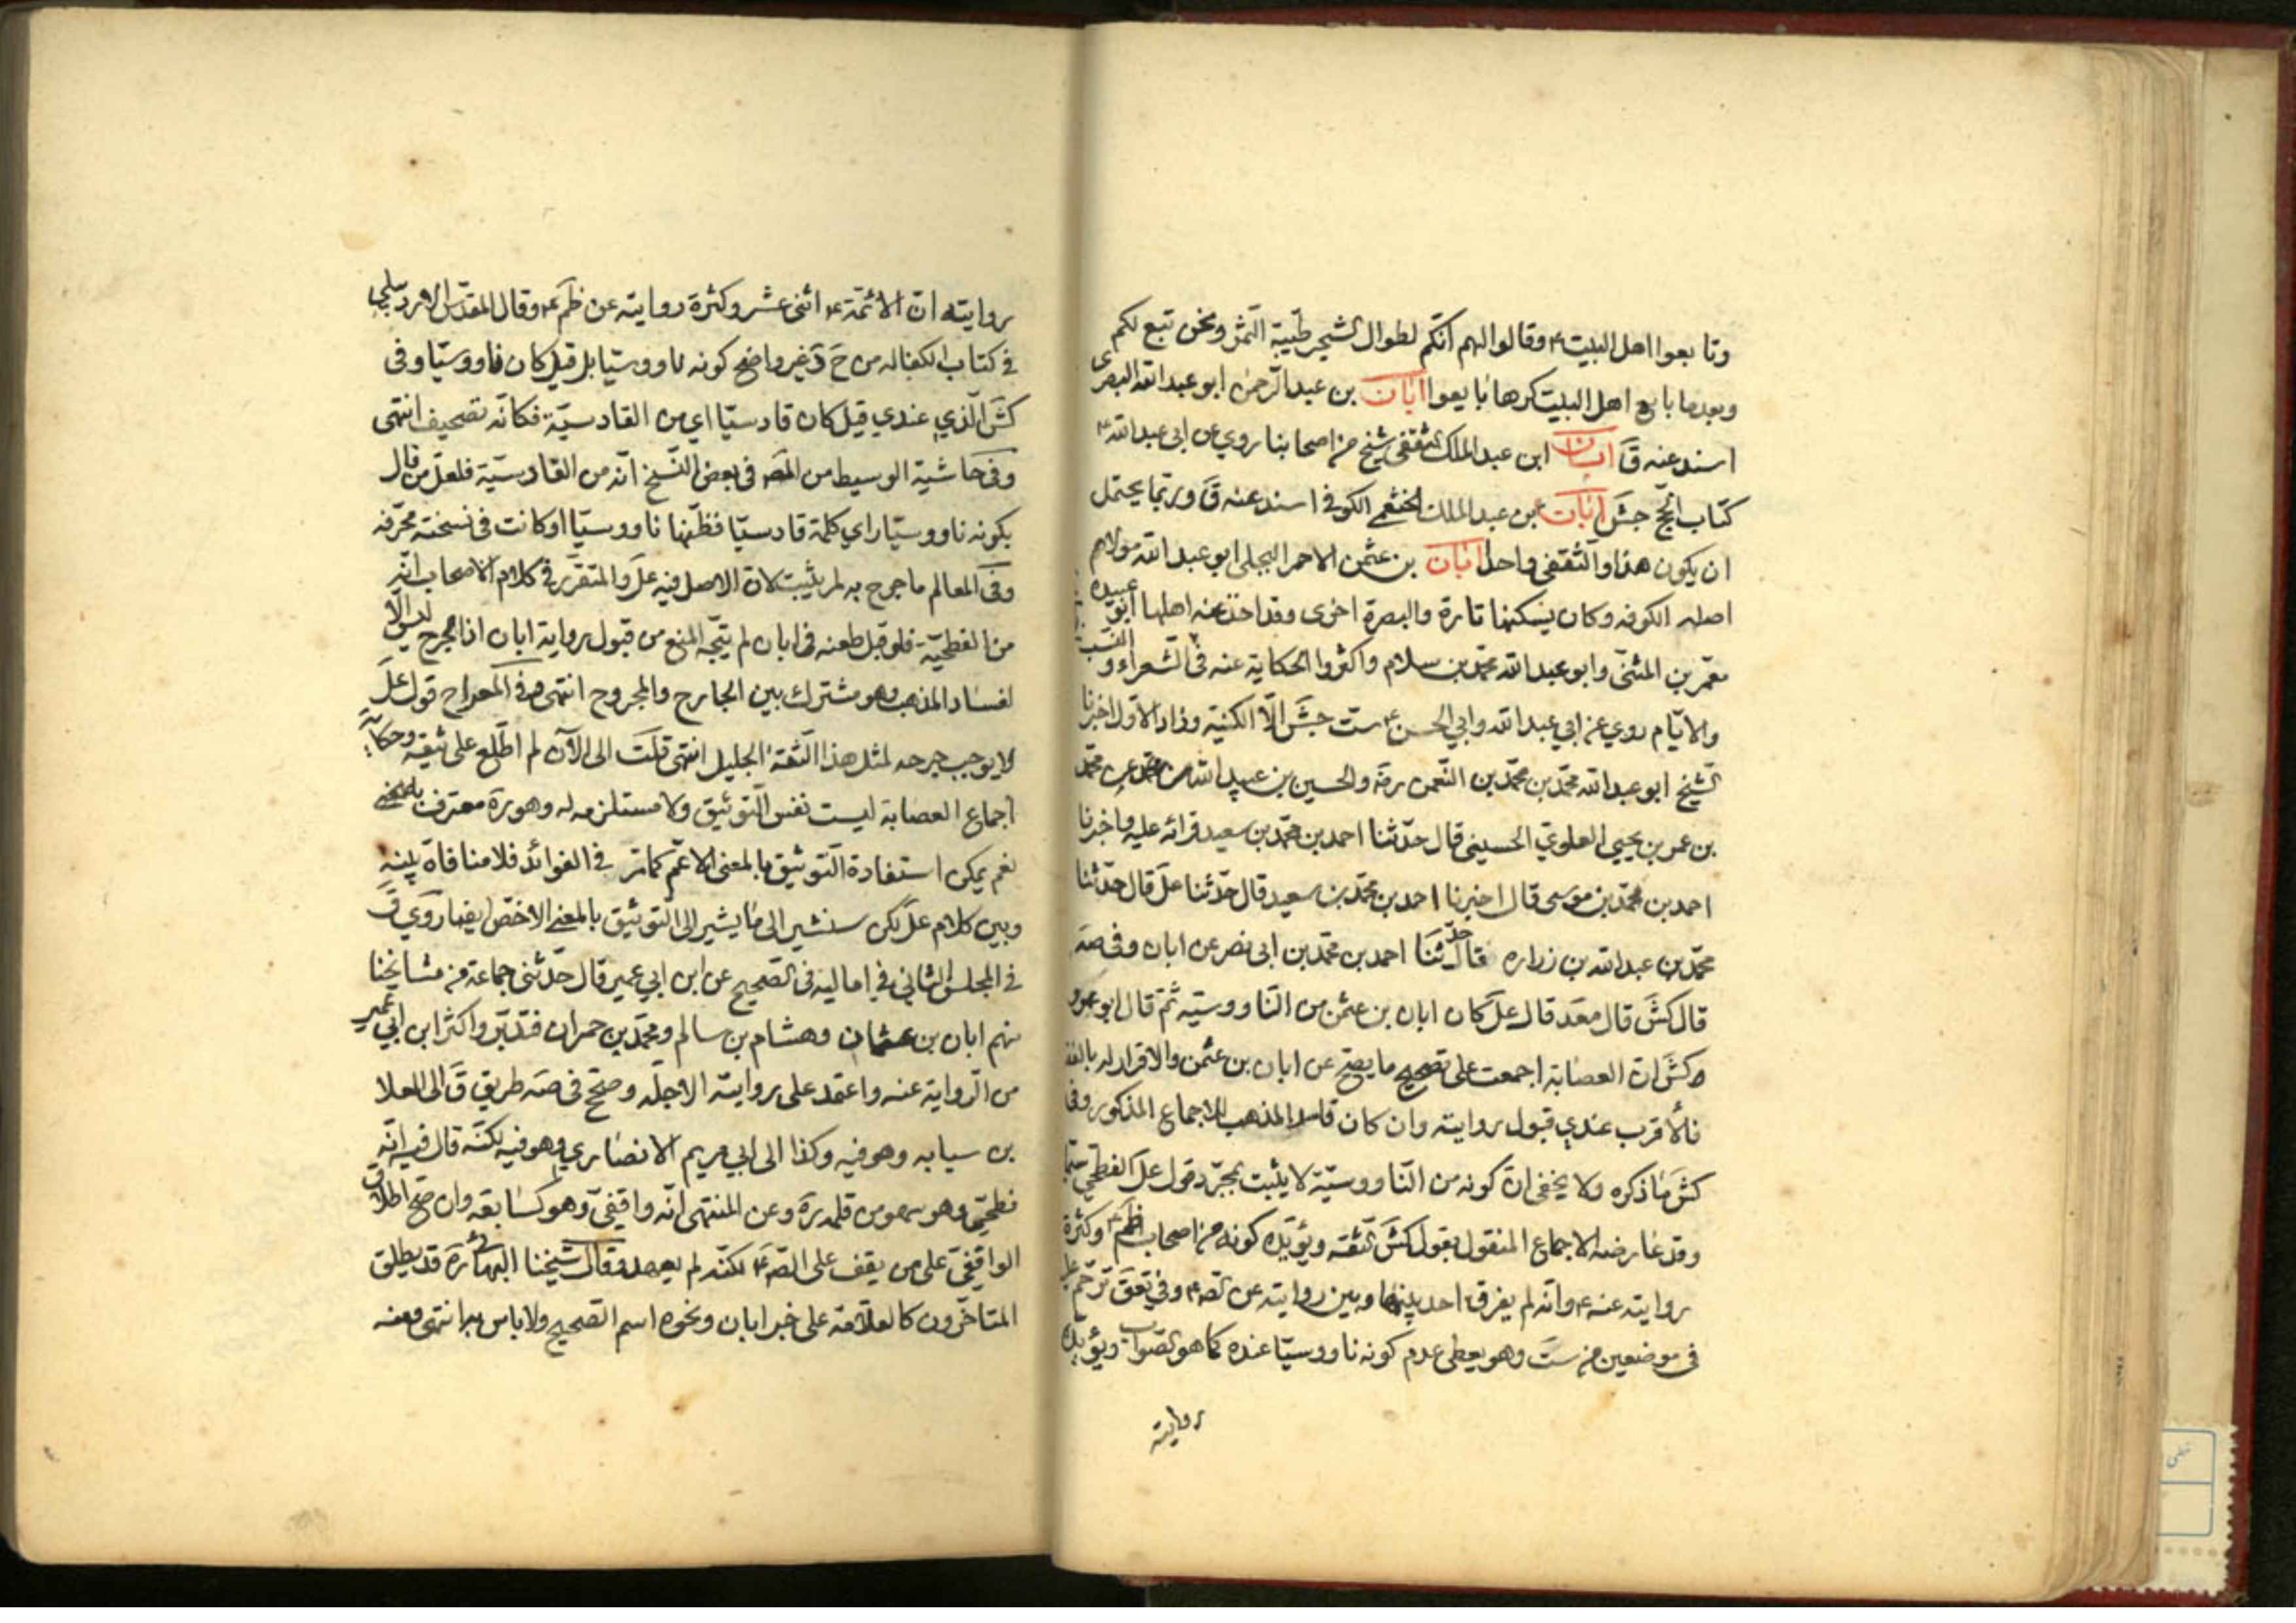 وتابعوا اهل البيت ع وقالوا لهم انكم لطوال الشجر طيبة الثمر ونحن تبع لكم
وبعدما بايع اهل البيت كرها بايعوا ابان بن عبد الرحمن ابو عبد الله البصرى
اسند عنه ق ابان ابن عبد الملك الثقفى شيخ من اصحابنا روي عن ابى عبد الله ع
كتاب الحج جش ابان بن عبد الملك الخثعمي الكوفي اسند عنه ق وربما يحتمل
ان يكون هذا والثقفى واحدا ابان بن عثمن الاحمر البجلى ابو عبد الله مولاهم
اصله الكوفه وكان يسكنها تارة والبصرة اخرى وقد اخذ عنه اهلها ابو عبيده
معمر بن المثنى وابو عبد الله محمد بن سلام واكثروا الحكاية عنه فى الشعراء والنسب
والايام روي عن ابي عبد الله وابي الحسن ع ست جش الا الكنية وزاد الاول اخبرنا
الشيخ ابو عبد الله محمد بن محمد بن النعمن ره والحسين بن عبيد الله عن محمد
بن عمر بن يحيى العلوي الحسينى قال حدثنا احمد بن محمد بن سعيد قرائه عليه واخبرنا
احمد بن محمد بن موسى قال اخبرنا احمد بن محمد بن سعيد قال حدثنا عل قال حدثنا
محمد بن عبد الله بن زراره قال حدثنا احمد بن محمد بن ابى نصر عن ابان وفى صه
قال كش قال معد قال عل كان ابان بن عثمن من الناووسيه ثم قال ابو عمرو
كش ان العصابة اجمعت على تصحيح ما يصح عن ابان بن عثمن والاقرار له بالفقه
فالأقرب عندي قبول روايته وان كان فاسد المذهب للاجماع المذكور وفى
كش ما ذكره ولا يخفى ان كونه من الناووسية لا يثبت بمجرد قول عل الفطحي سيما
وقد عارضه الاجماع المنقول بقول كش الثقه ويؤيده كونه من اصحاب ظم ع وكثرة
روايته عنه ع وانه لم يفرق احد بينها وبين روايته عن الصه ع وفي تعق ترحم عليه
فى موضعين من ست وهو يعطى عدم كونه ناووسيا عنده كما هو الصواب ويؤيده
روايته
روايته ان الائمة ع اثنى عشر وكثرة روايته عن ظم ع وقال المقدس الاردبيلي
في كتاب الكفاله من ح د غير واضح كونه ناووسيا بل قيل كان ناووسيا وفى
كش الذي عندي قيل كان قادسيا اي من القادسية فكانه تصحيف انتهى
وفى حاشية الوسيط من المصه فى بعض النسخ انه من القادسية فلعل من قال
بكونه ناووسيا راي كلمة قادسيا فظنها ناووسيا او كانت فى نسخته محرفه
وفى المعالم ما جرح به لم يثبت لان الاصل فيه عل والمتقرر في كلام الاصحاب انه
من الفطحية فلو قبل طعنه فى ابان لم يتجه المنع من قبول رواية ابان اذ الجرح ليس الا
لفساد المذهب وهو مشترك بين الجارح والمجروح انتهى وفي المعراج قول عل
لا يوجب جرحه لمثل هذا الثقة الجليل انتهى قلت الى الآن لم اطلع على ثيقه وحكاية
اجماع العصابة ليست نفس التوثيق ولا مستلزمه له وهو ره معترف به
نعم يمكن استفادة التوثيق بالمعنى الاعم كما مر في الفوائد فلا منافاة بينه
وبين كلام عل لكن سنشير الى ما يشير الى التوثيق بالمعنى الاخص ايضا روى ق
في المجلس الثاني في اماليه فى الصحيح عن ابن ابي عمير قال حدثنى جماعة من مشايخنا
منهم ابان بن عثمان وهشام بن سالم ومحمد بن حمران فتدبر واكثر ابن ابي عمير
من الرواية عنه واعتمد على روايته الاجله وصحح فى صه طريق ق الى العلا
بن سيابه وهو فيه وكذا الى ابي مريم الانصاري وهو فيه لكنه قال فيه انه
فطحي وهو سهو من قلمه ره وعن المنتهى انه واقفي وهو كسابقه وان صح اطلاق
الواقفي على من يقف على الصه ع لكنه لم يعهد وقال شيخنا البهائي ره قد يطلق
المتاخرون كالعلامة على خبر ابان ونحوه اسم الصحيح ولا باس به انتهى وعنه